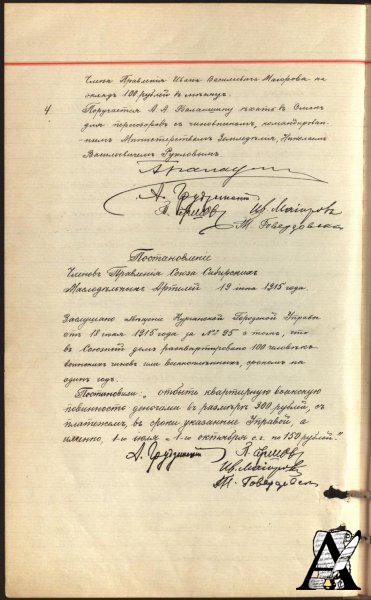 Члена Правленія Ивана Васильевича Маіорова на
окладъ 100 рублей въ мѣсяцъ.
4. Поручается А. А. Балакшину ѣхать въ Омскъ
для переговоровъ съ чиновникомъ, командирован-
нымъ Министерствомъ Земледѣлія, Николаемъ
Васильевичемъ
А. Балакшинъ
А. Грудзинскій
Ив. Маіоровъ
Постановленіе
Членовъ Правленія Союза Сибирскихъ
Маслодѣльныхъ Артелей 19 іюня 1915 года.
Заслушано Курганской Городской Управы
от 18 іюня 1915 года за № 95 о томъ, что
въ Союзный домъ расквартировано 100 человѣкъ
воинскихъ чиновъ или военноплѣнныхъ, срокомъ на
одинъ годъ.
Постановили: „отбыть квартирную воинскую
повинность деньгами въ размѣрѣ 300 рублей, съ
платежомъ, въ сроки указанные Управой, а
именно, 1-го іюля и 1-го октября с.г. по 150 рублей."
А. Грудзинскій
Ив. Маіоровъ
А